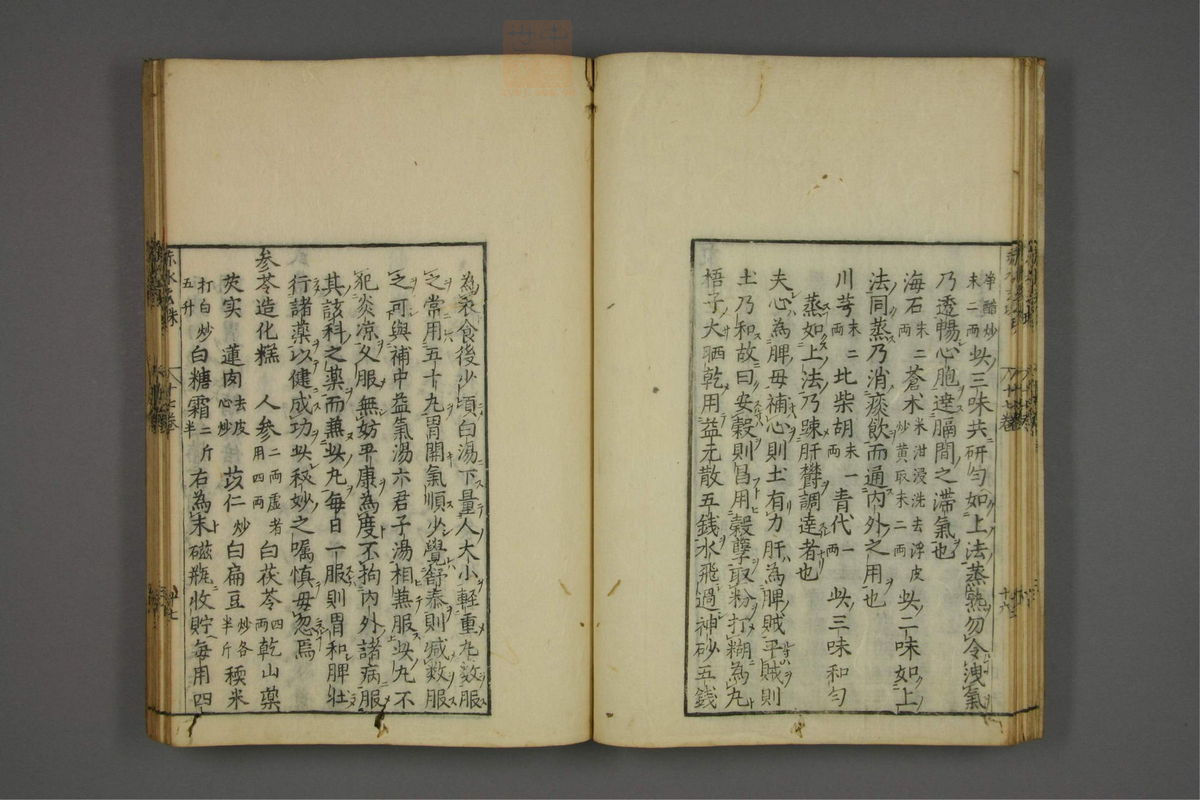 単醋炒末二両此三味共研勻如上法蒸熟勿令洩氣
乃透暢心胞達膈間之滞氣也
海石末二両蒼术米泔浸洗去浮皮炒黄取末二両此二味如上
法同蒸乃消痰飲而通内外之用也
川芎末二両北柴胡末一両青代一両此三味和勻
蒸如上法乃踈肝欝調達者也
夫心為脾毋補心則土有力肝為脾賊平賊則
土乃和故曰安穀則昌用穀孽取粉打糊為丸
梧子大晒乾用益元散五銭水飛過神砂五銭
為衣食後少頃白湯下量人大小軽重丸数服
之常用五十丸胃開氣順少覺舒泰則减数服
之可與補中益氣湯六君子湯相兼服此丸不
犯炎凉久服無妨平康為度不拘内外諸病服
其該科之薬而兼此丸毎日一服則胃和脾壮
行諸薬以健成功此秘妙之嘱慎毋忽焉
参苓造化糕　人参二両虚者用四両白茯苓四両乾山薬
芡実　蓮肉去皮心炒　苡仁炒白扁豆炒各半斤糯米
打白炒五升白糖霜二斤半右為末磁瓶收貯毎用四
赤水玄珠
十七巻